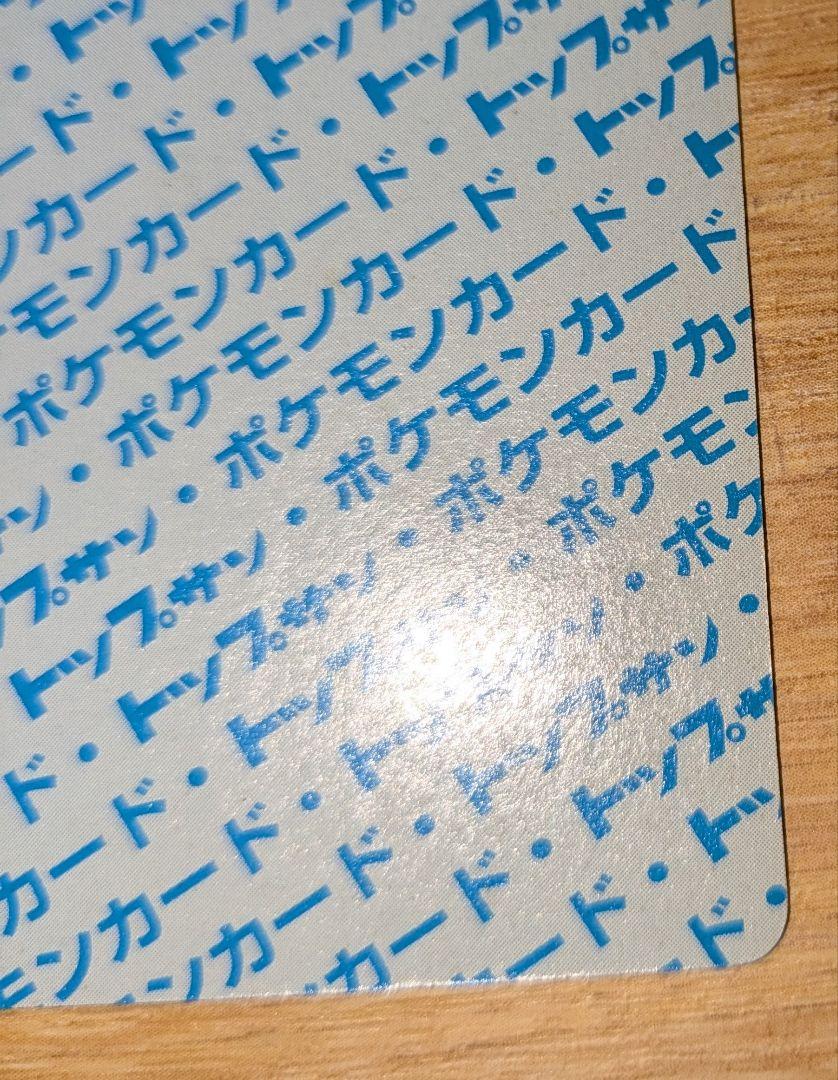 ・トッ
ード・トッ
ンカード・トップ
モンカード・トップサ
ポケモンカード・トップサ
サン・ポケモンカード・トップ
ップサン・ポケモンカード・トッ
トップサン・ポケモンカード
ド・トップサン・ポケモンカー
カード・トップサン・ポケモン
モンカード・トップサン・ポケ
ンカード・トップサン・
カード・トップサ
ード・トッ
ド・